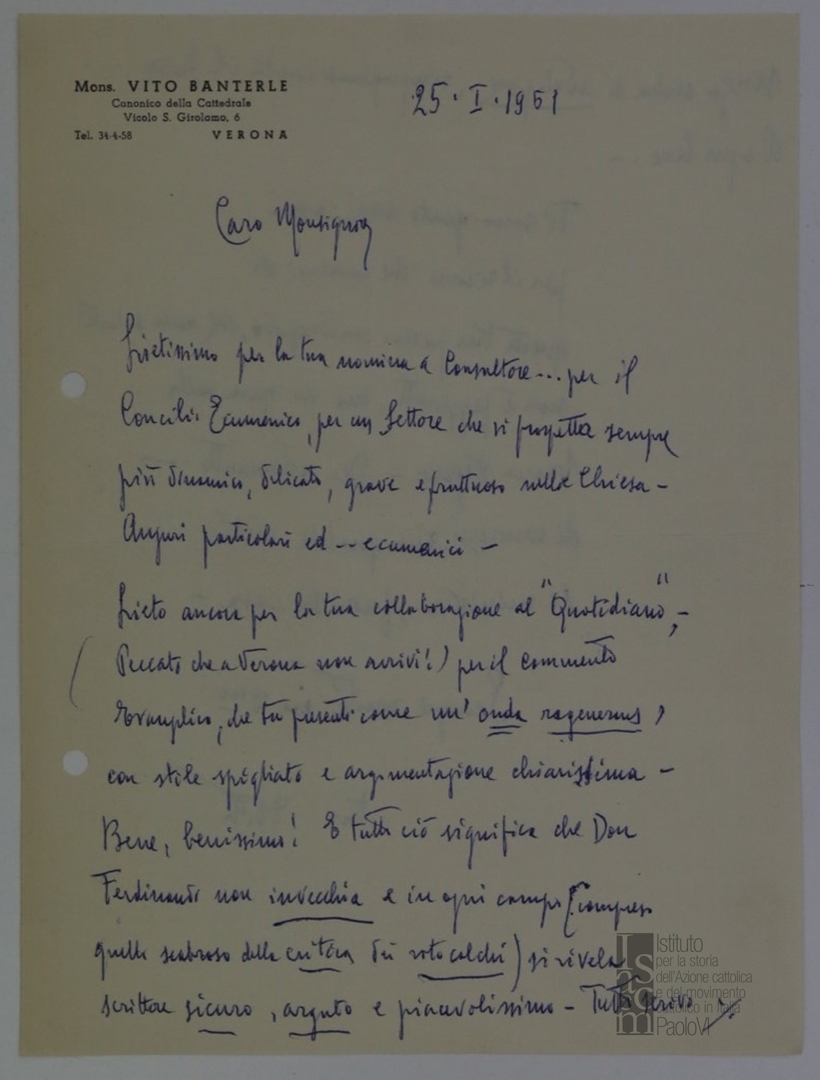 Mons. VITO BANTERLE
Canonico della Cattedrale
Vicolo S. Girolamo, 6
Tel. 34-4-58 VERONA
25.I.1961
Caro Monsignor
Lietissimo per la tua nomina a Consultore... per il
Concilio Ecumenico, per un settore che si prospetta sempre
più dinamico, delicato, grave e fruttuoso nella Chiesa -
Auguri particolari ed -- ecumenici -
Lieto ancora per la tua collaborazione al "Quotidiano", -
(Peccato che a Verona non arrivi!) per il commento
Evangelico, che tu presenti come un' onda
con stile spigliato e argomentazione chiarissima -
Bene, benissimo! E tutto ciò significa che Don
Ferdinando non invecchia e in ogni campo (compreso
quello scabroso della critica dei rotocalchi) si rivela
scrittore sicuro, arguto e piacevolissimo - Tutti
Istituto
per la storia
dell'Azione cattolica
e del movimento
cattolico in Italia
Paolo VI